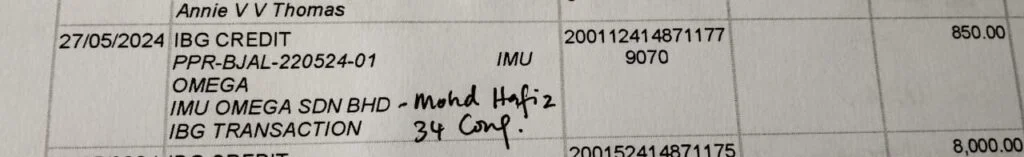 Annie V V Thomas
27/05/2024 IBG CREDIT 200112414871177 850.00
PPR-BJAL-220524-01 IMU 9070
OMEGA
IMU OMEGA SDN BHD - Mohd Hafiz
IBG TRANSACTION 34 Conf.
IBG CREDIT 200152414871175 8,000.00